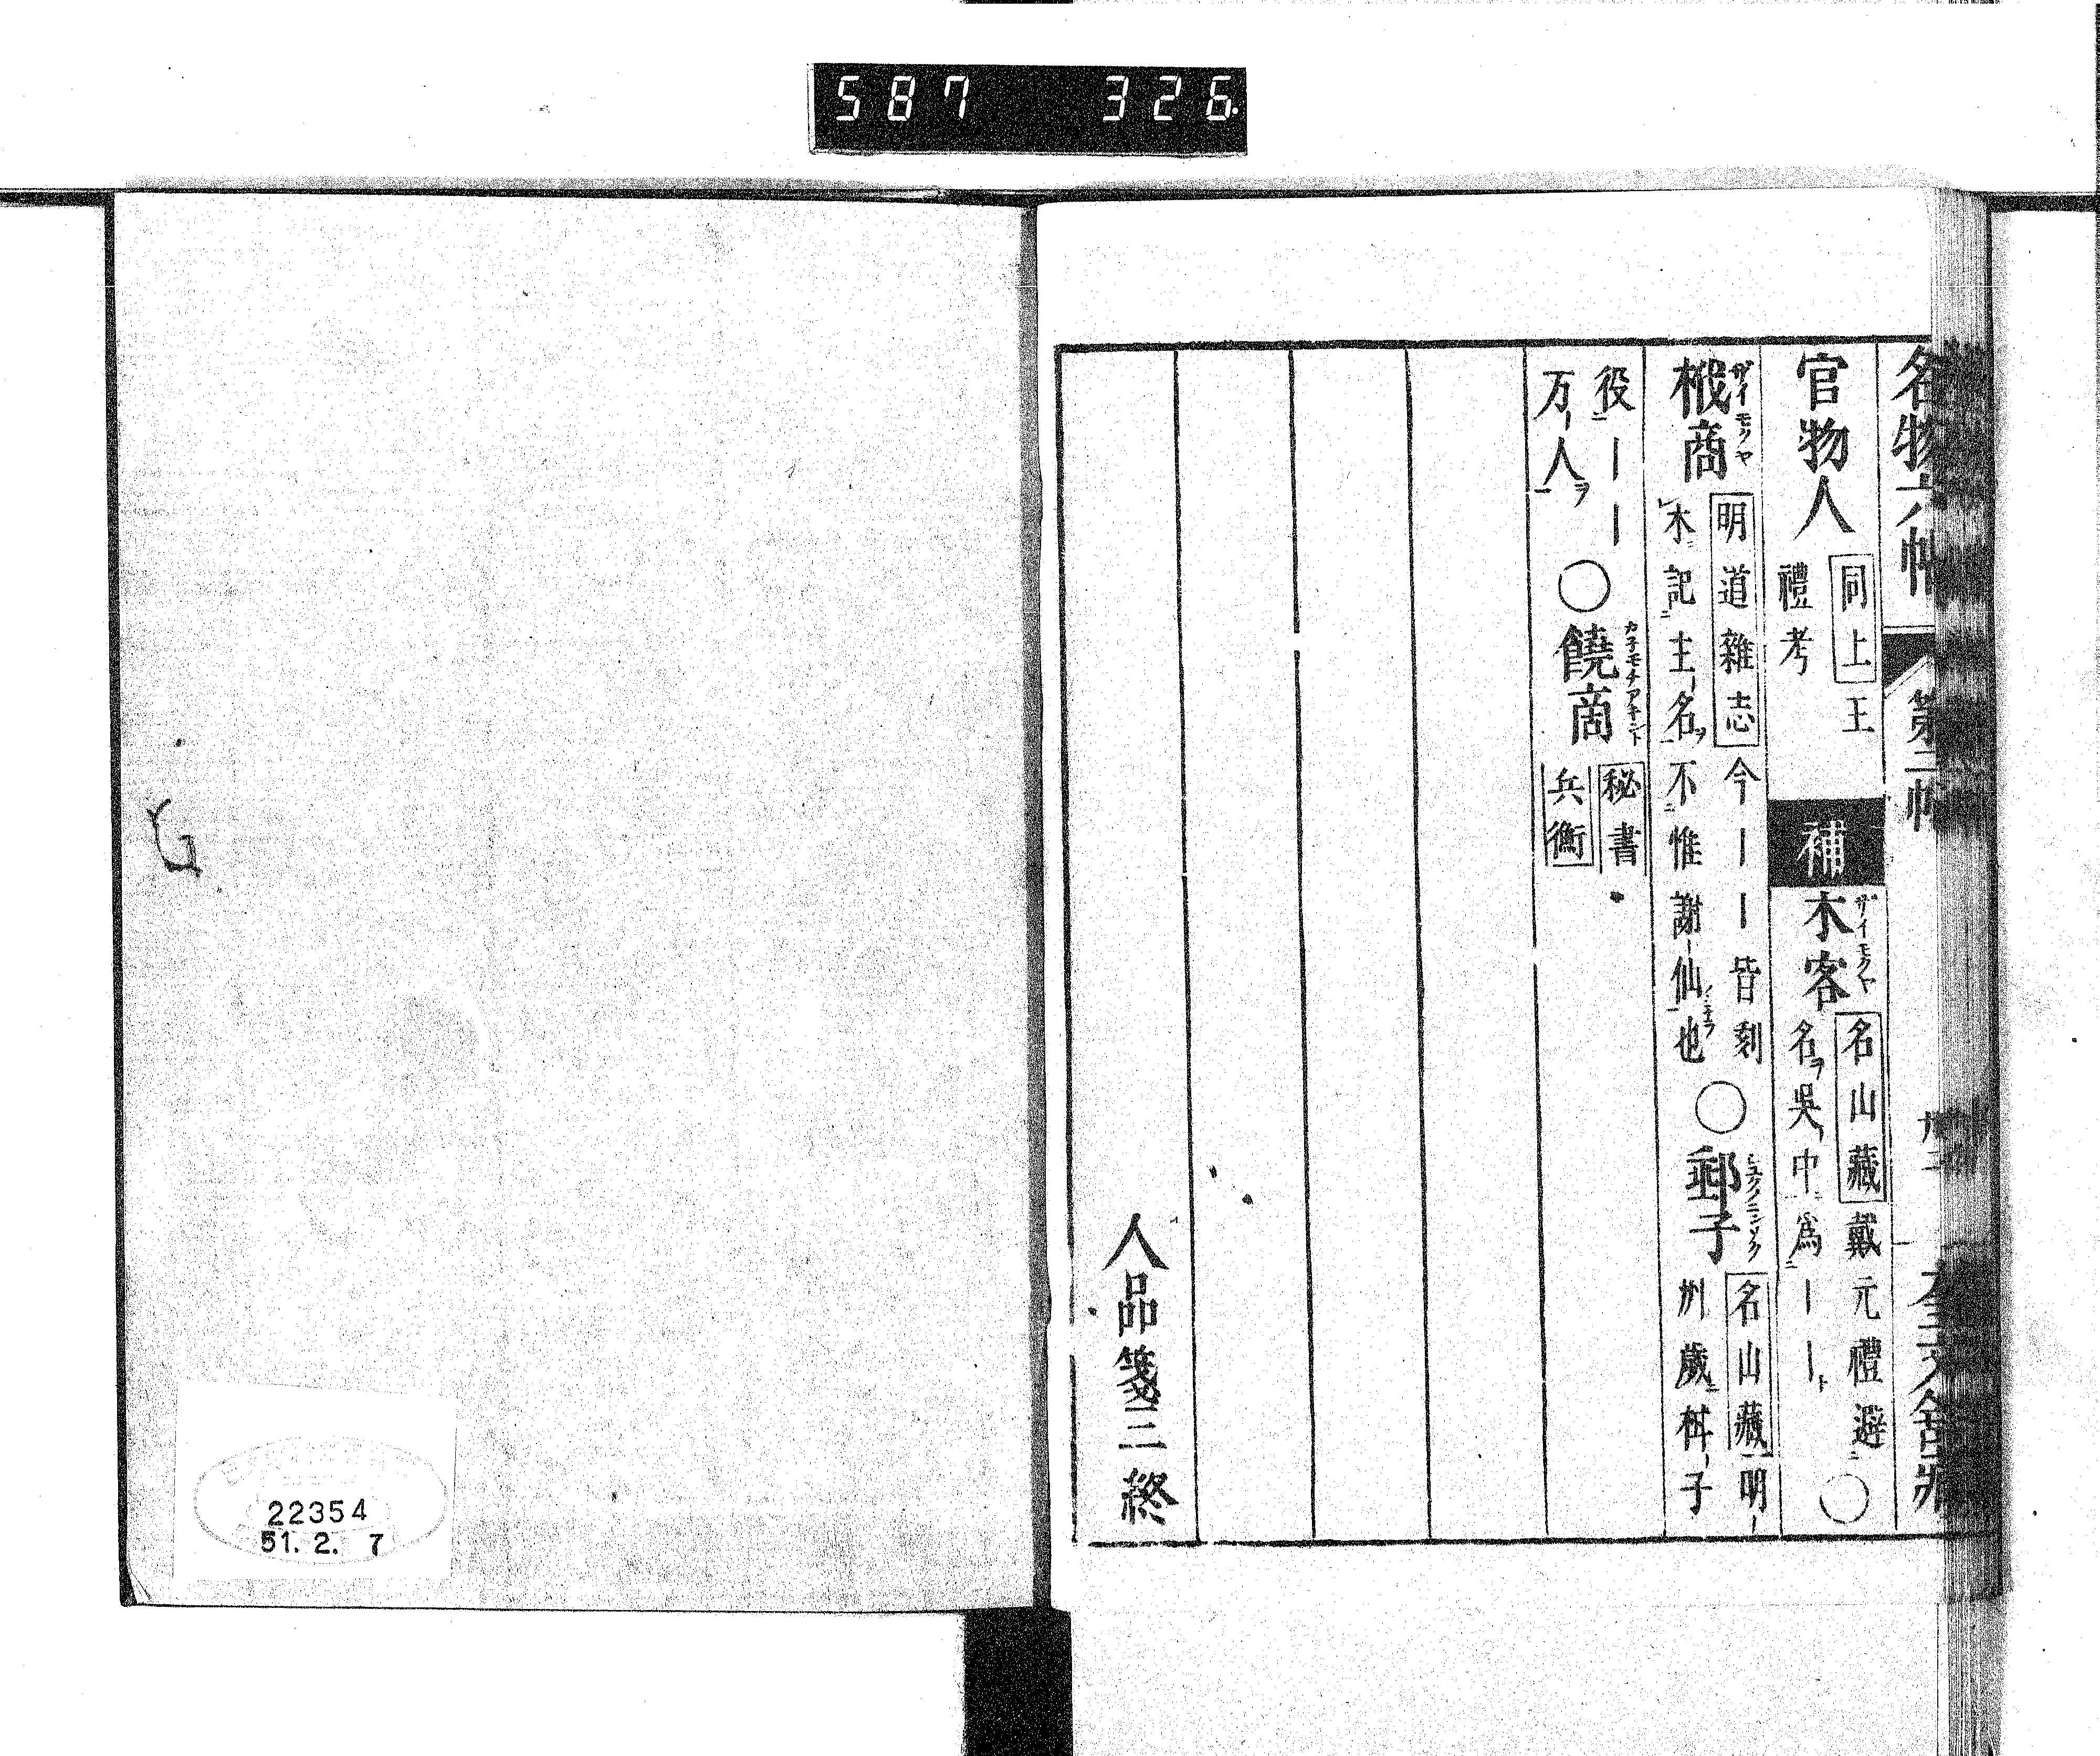 587 326.
名物六帖 第二帖
官物人 同上 王
禮考
補 木客 ザイモクヤ 名山藏 戴元禮避
名ヲ吳中爲ーー ○
栰商 ザイモクヤ 明道雜志 今ーー皆刻
木記主名ヲ不惟謝仙也 ○
郵子 名山藏 明
州歲
子
役ーー
万人ヲ ○
饒商 カ子モチアキント 秘書
兵衡
人品箋三終
22354
51. 2. 7